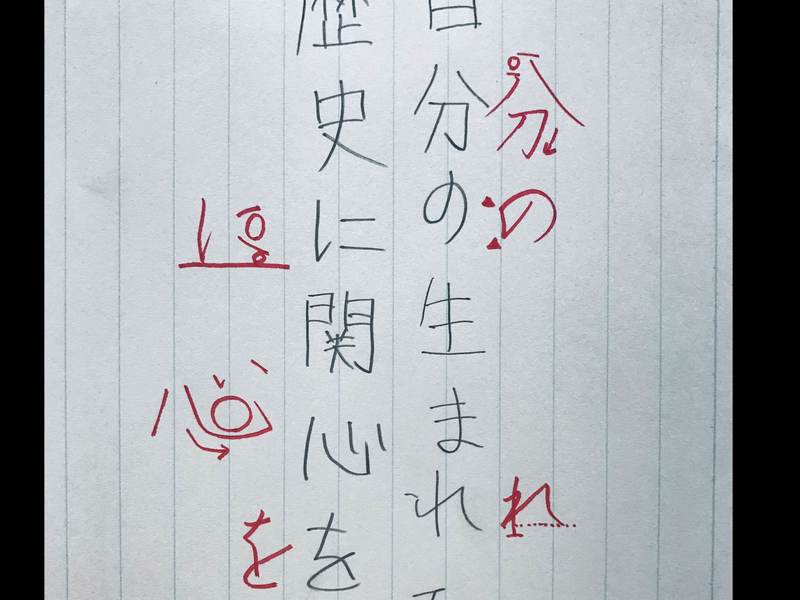 分の
れ
自分の生まれ
歴史に関心を
に
心
を